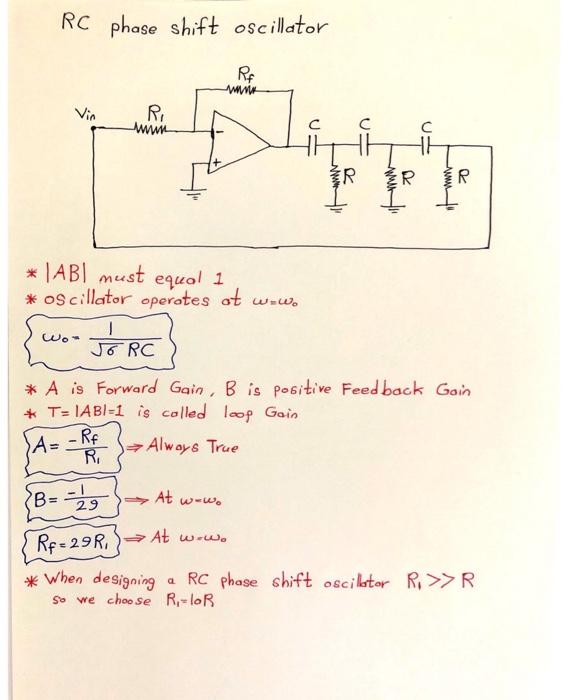 RC phase shift oscillator
Rf
Vin
R1
C
C
C
-
+
R
R
R
* |AB| must equal 1
* oscillator operates at ω=ω₀
ω₀ = 1/√6 RC
* A is Forward Gain, B is positive Feedback Gain
* T=|AB|=1 is called loop Gain
A = -Rf/R1 ⇒ Always True
B = -1/29 ⇒ At ω=ω₀
Rf = 29R1 ⇒ At ω=ω₀
* When designing a RC phase shift oscillator R1 >> R
so we choose R1=10R